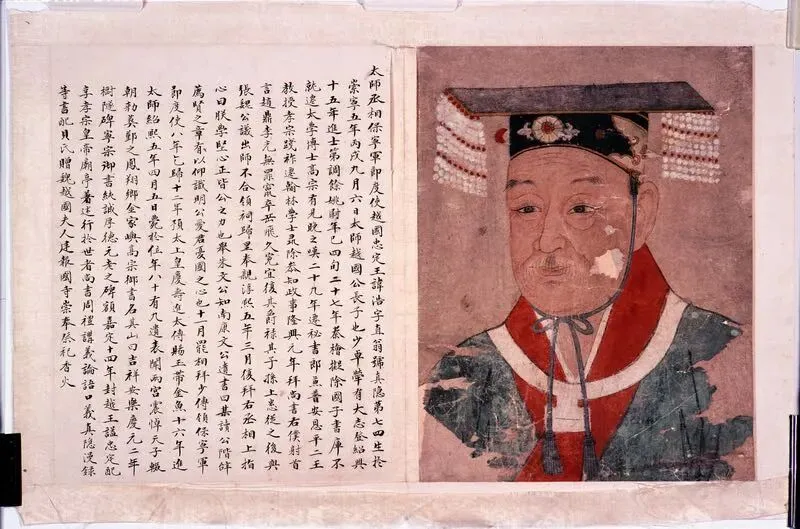 太師丞相保寧軍節度使越國忠定王諱浩字直翁號真隱第七四生於
崇寧五年丙戌九月六日太師越國公長子也少卓犖有大志登紹興
十五年進士第調餘姚尉年已四旬二十七年秦檜擬除國子書庫不
就遷太學博士高宗有見晚之嘆二十九年遷秘書郎兼普安恩平二王
教授孝宗踐祚遷翰林學士尋除參知政事隆興元年拜尚書右僕射首
言趙鼎李光無罪竄卒岳飛久冤宜復其爵祿其子孫上悉從之後與
張魏公議出師不合領祠歸里奉親淳熙五年三月後拜右丞相上指
心曰朕學堅心正皆公之力也舉朱文公知南康文公遺書曰某讀公階辭
薦賢之章有以仰識明公愛君憂國之心也十一月罷相拜少傅領保寧軍
節度使八年乞歸十二年預太上皇慶壽進太傅賜玉帶金魚十六年進
太師紹熙五年四月五日薨於位年八十有九遺表聞兩宮震悼天子輟
朝勅葬鄞之鳳翔鄉金家嶴高宗御書名其山曰吉祥安樂慶元二年
樹隧碑寧宗御書純誠厚德元老之碑額嘉定十四年封越王謚忠定配
享孝宗皇帝廟亭著述行於世者尚書周禮講義論語口義真隱漫錄
等書配貝氏贈魏越國夫人建報國寺崇奉祭祀香火